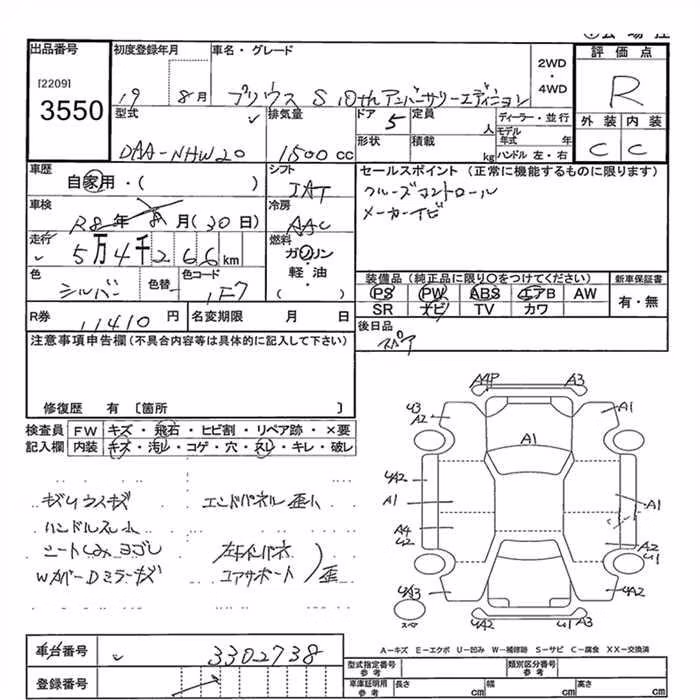 出品番号
[2209]
3550
初度登録年月
19 8月
車名・グレード
プリウス S 10thアニバーサリーエディション
2WD
・
4WD
評価点
R
外装 内装
C C
型式
DAA-NHW20
排気量
1500 cc
ドア 5
定員 人
ディーラー・並行
モデル年式 年
形状
積載 kg
ハンドル 左・右
車歴
自家用・( )
シフト
IAT
セールスポイント(正常に機能するものに限ります)
クルーズコントロール
メーカーナビ
車検
R8年 8月(30日)
冷房
AAC
走行
5万4千266km
燃料
ガソリン
・
軽油
( )
色
シルバー
色替
色コード
1F7
装備品(純正品に限り○をつけてください)
新車保証書
PS PW ABS エアB AW
有・無
SR ナビ TV カワ
R券
11410円
名変期限 月 日
後日品
スペア
注意事項申告欄(不具合内容等は具体的に記入して下さい)
修復歴 有〔箇所 〕
検査員 FW キズ・飛石・ヒビ割・リペア跡・×要
記入欄 内装 キズ・汚れ・コゲ・穴・スレ・キレ・破レ
A4P A3
43
A2
A1
A1
4A2
A1
A1
A4
42
A2
41
4A3
4A2
スペア
4A2 41 A3
エンドパネル歪小
ハンドルスレ小
シートしみヨゴレ
WカバーDミラーキズ
コアサポート 歪
車台番号
3302738
登録番号
A-キズ E-エクボ U-凹み W-補修跡 S-サビ C-腐食 XX-交換済
型式指定番号 参考
類別区分番号 参考
車庫証明用 参考
長さ cm 幅 cm 高さ cm